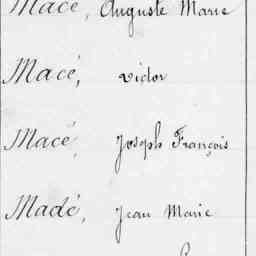 Macé, Auguste Marie
Macé, Victor
Macé, Joseph François
Madé, Jean Marie